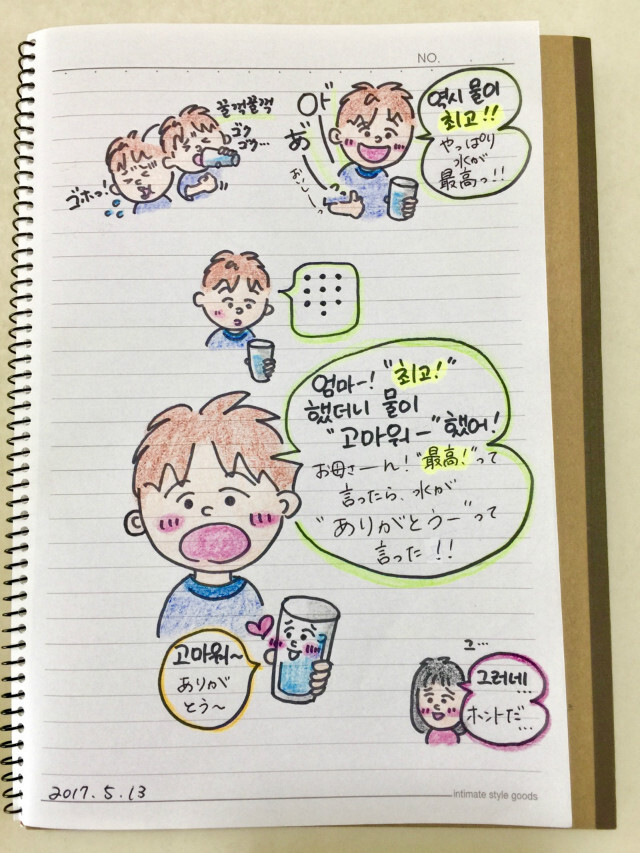 NO.
꿀꺽꿀꺽
ゴク
ゴク…
ゴホっ!
아
あ゛
おいしーっ
역시 물이
최고!!
やっぱり
水が
最高っ!!
엄마-! "최고!"
했더니 물이
"고마워-" 했어!
お母さーん! "最高!"って
言ったら、水が
"ありがとうー"って
言った!!
고마워~
ありが
とう~
그…
그러네…
ホントだ…
2017.5.13
intimate style goods